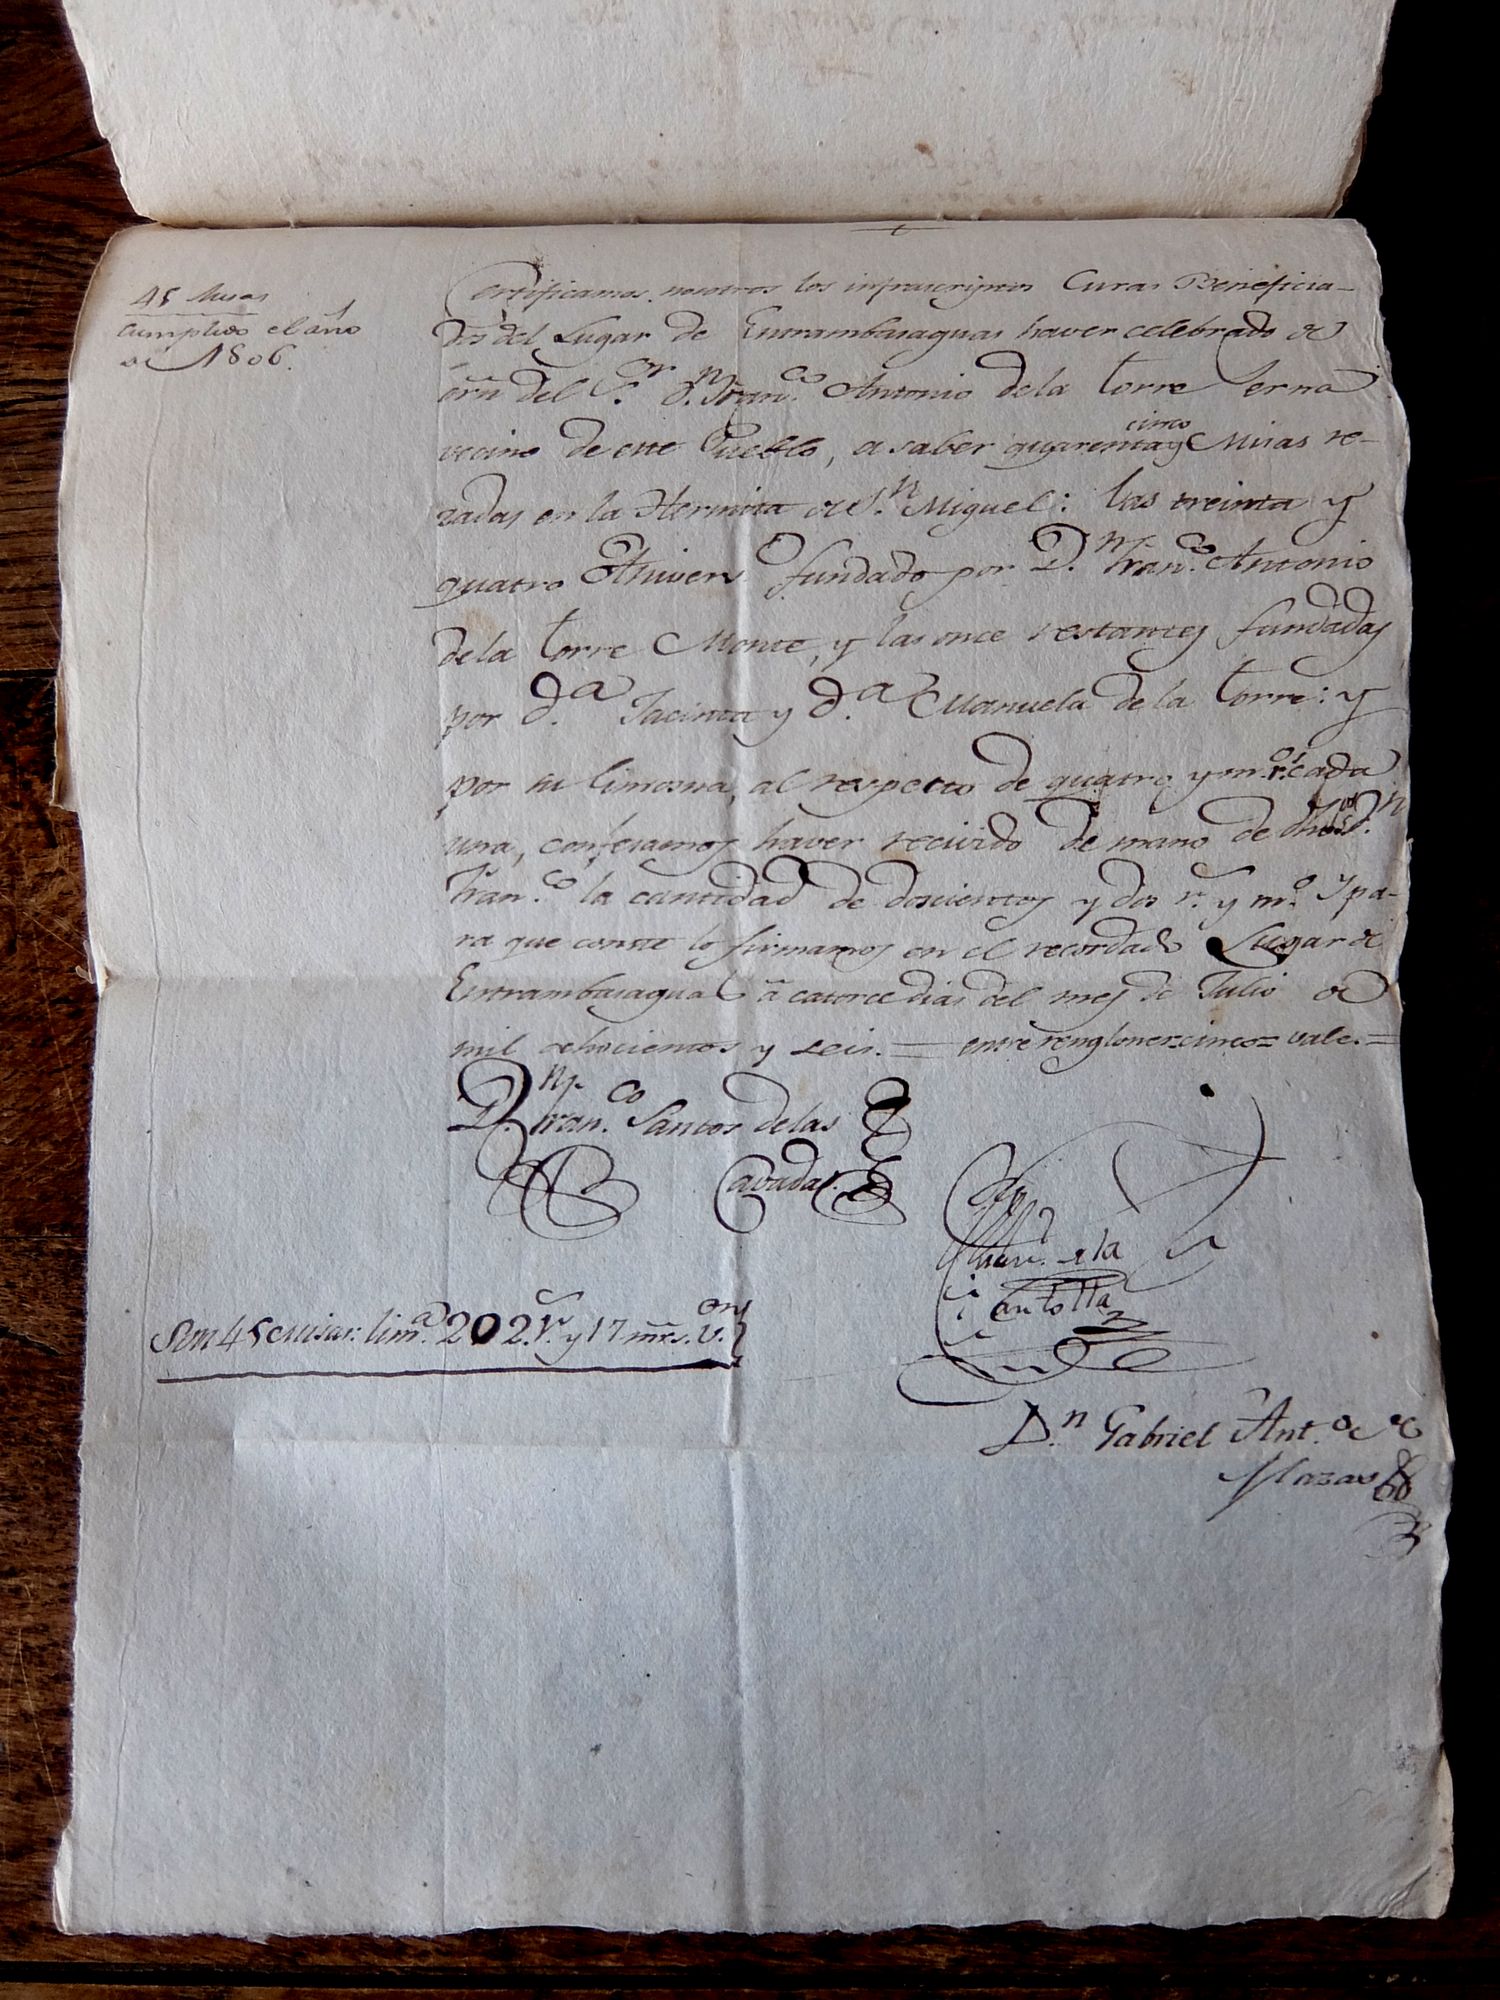 45 Misas
cumplido el año
de 1806.
Certificamos nosotros los infrascriptos Curas Beneficia-
dos del Lugar de Entrambasaguas haver celebrado de
orñ del S.or D.n Fran.co Antonio de la Torre Serna
vecino de este Pueblo, a saber quarenta y cinco Misas re-
zadas en la Hermita de S.n Miguel: las treinta y
quatro Anivers.o fundado por D.n Fran.co Antonio
de la Torre Monte, y las once restantes fundadas
por D.a Jacinta y D.a Manuela de la Torre: y
por su limosna, al respecto de quatro y m.o r.s cada
una, confesamos haver recivido de mano de dho S.or D.n
Fran.co la cantidad de doscientos y dos r.s y m.o Y pa-
ra que conste lo firmamos en el recordado Lugar de
Entrambasaguas à catorce dias del mes de Julio de
mil ochocientos y seis. = entre renglones=cinco= vale. =
D.n Fran.co Santos de las
Cavadas
de la
Cantolla
Son 45 Misas: lim.a 202 r.s y 17 mrs. v.on
D.n Gabriel Ant.o de
Mazas